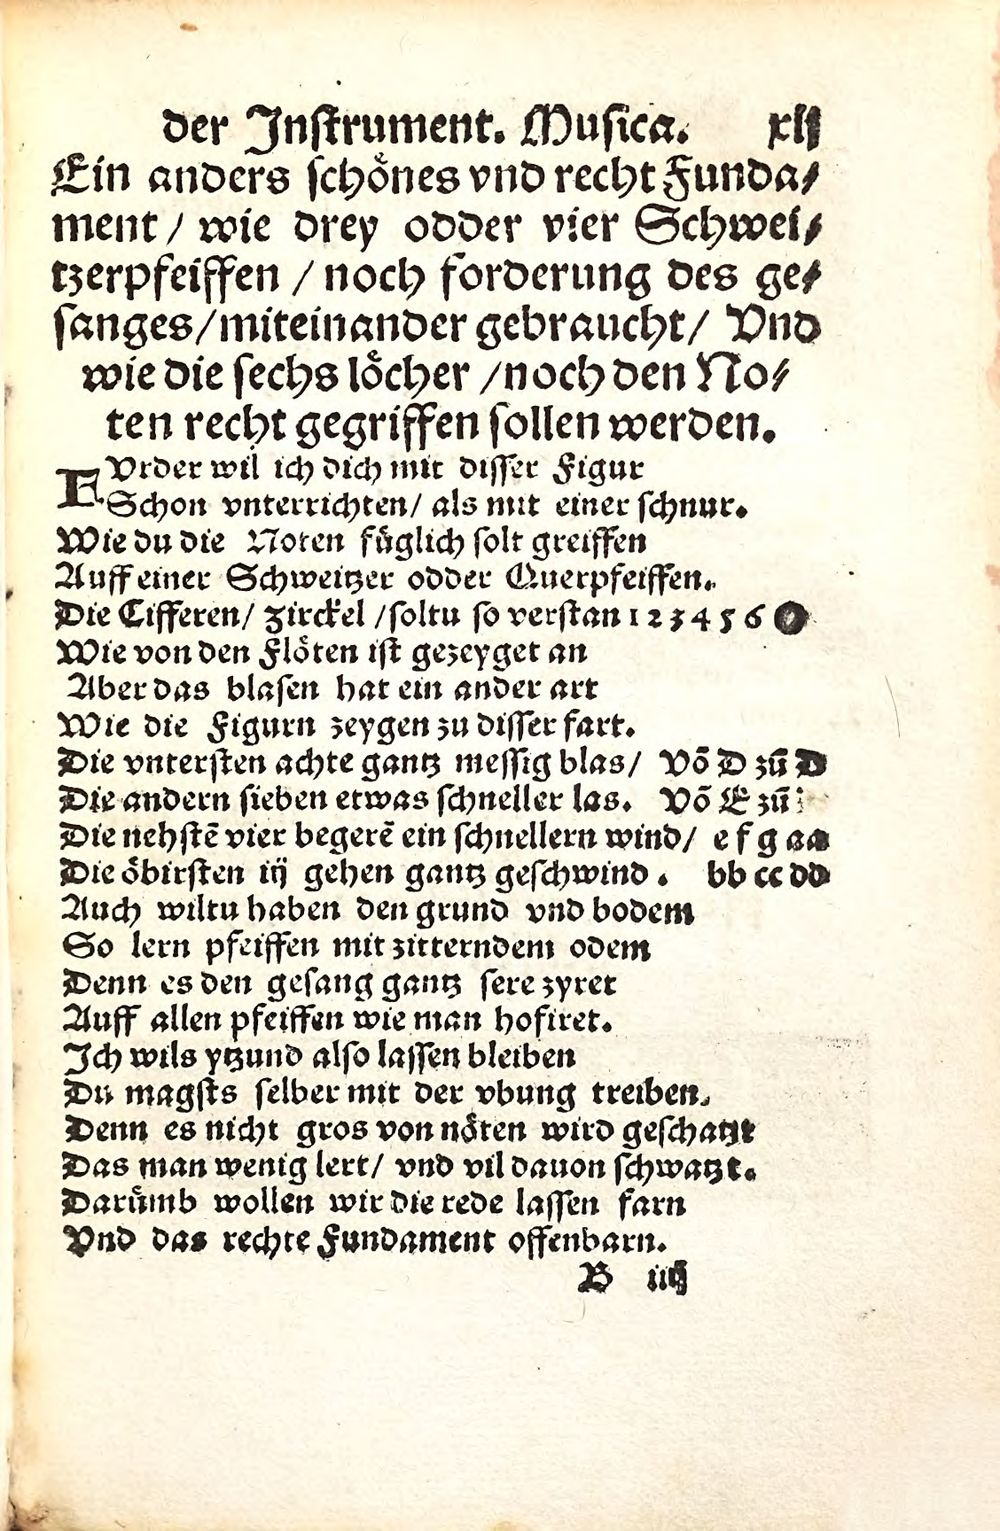 der Inſtrument. Muſica. xlj
Ein anders ſchoͤnes vnd recht Funda⸗
ment / wie drey odder vier Schwei⸗
tzerpfeiffen / noch forderung des ge⸗
ſanges / miteinander gebraucht / Vnd
wie die ſechs loͤcher / noch den No⸗
ten recht gegriffen ſollen werden.
FVrder wil ich dich mit diſſer Figur
Schon vnterrichten / als mit einer ſchnur.
Wie du die Noten fuͤglich ſolt greiffen
Auff einer Schweitzer odder Querpfeiffen.
Die Cifferen / zirckel / ſoltu ſo verſtan 1 2 3 4 5 6 O
Wie von den Floͤten iſt gezeyget an
Aber das blaſen hat ein ander art
Wie die Figurn zeygen zu diſſer fart.
Die vnterſten achte gantz meſſig blas / Võ D zũ D
Die andern ſieben etwas ſchneller las. Võ E zũ
Die nehſtẽ vier begerẽ ein ſchnellern wind / e f g aa
Die oͤbirſten iij gehen gantz geſchwind. bb cc dd
Auch wiltu haben den grund vnd bodem
So lern pfeiffen mit zitterndem odem
Denn es den geſang gantz ſere zyret
Auff allen pfeiffen wie man hofiret.
Ich wils ytzund alſo laſſen bleiben
Du magſts ſelber mit der vbung treiben.
Denn es nicht gros von noͤten wird geſchatzt
Das man wenig lert / vnd vil dauon ſchwatzt.
Daruͤmb wollen wir die rede laſſen farn
Vnd das rechte Fundament offenbarn.
B iiij